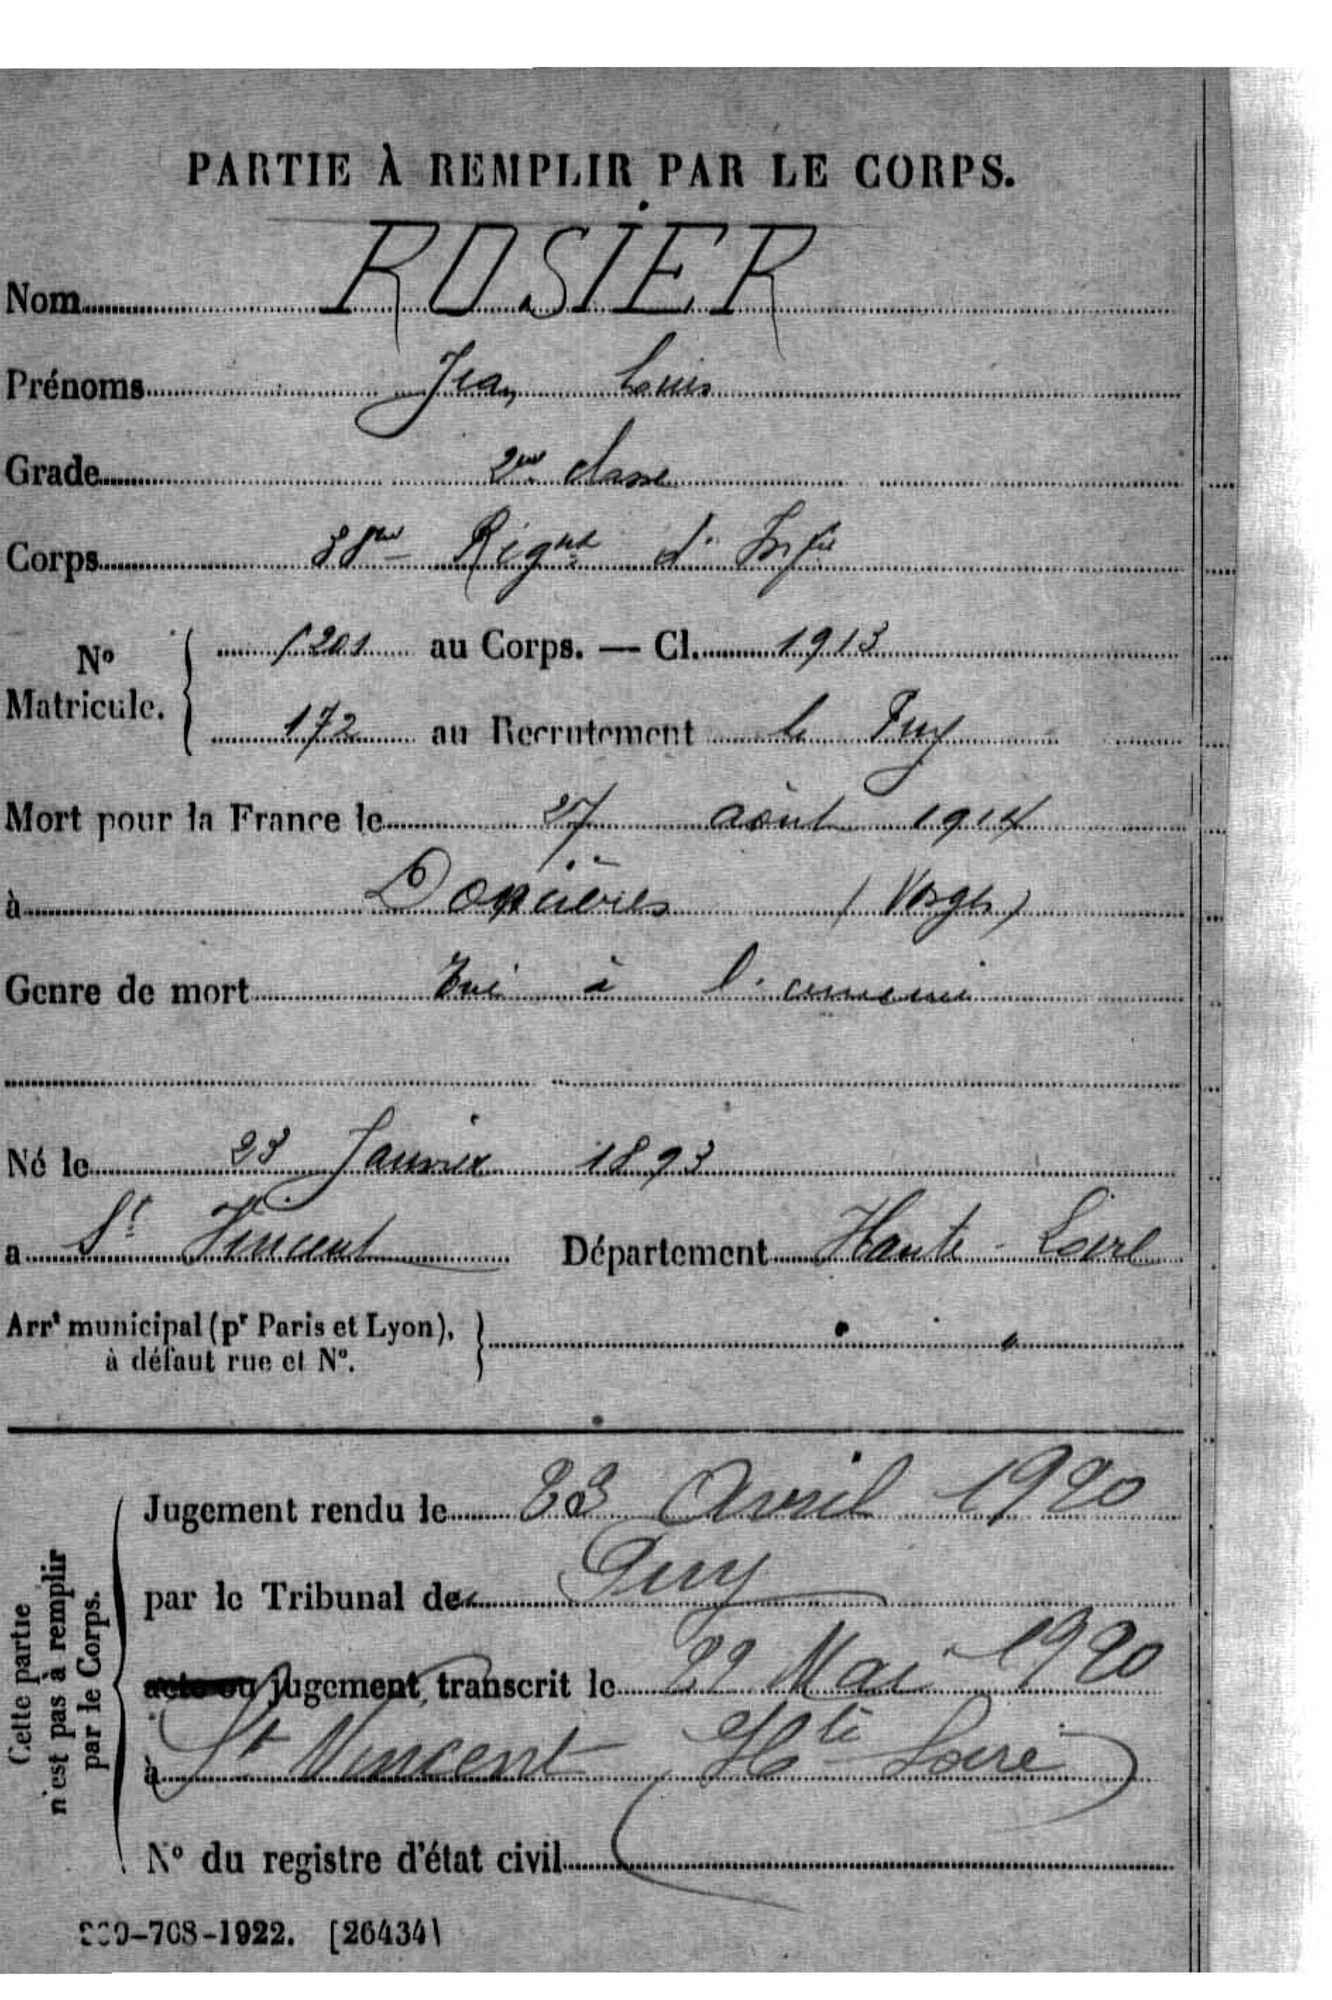 PARTIE À REMPLIR PAR LE CORPS.
Nom ROSIER
Prénoms Jean Louis
Grade 2me classe
Corps 38me Régnt d'Infie
No Matricule. 1201 au Corps. — Cl. 1913
172 au Recrutement le Puy
Mort pour la France le 27 août 1914
à (Vosges)
Genre de mort Tué à l'ennemi
Né le 23 Janvier 1893
a St Vincent Département Haute-Loire
Arrt municipal (pr Paris et Lyon),
à défaut rue et No.
Cette partie
n'est pas à remplir
par le Corps.
Jugement rendu le 23 Avril 1920
par le Tribunal de Puy
acte ou jugement transcrit le 29 Mai 1920
à St Vincent (Hte Loire)
No du registre d'état civil
-708-1922. [26434]